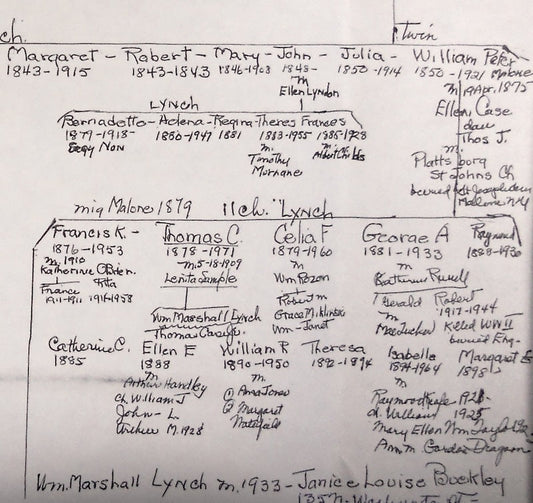 ch.
twin
Margaret - Robert - Mary - John - Julia - William Peter
1843-1915 1843-1843 1846-1908 1848- 1850-1914 1850-1921 Malone
m 19 Apr. 1875
m
Ellen Lyndon
Ellen Case
dau
Thos J.
m.
Plattsborg
St Johns Ch
buried St Josephs
Malone NY
LYNCH
Bernadette - Helena - Regina - Theres Frances
1879-1918- 1880-1947 1881 1883-1955 1885-1928
Egg Non
m. m.
Timothy Albert Childs
Murnane
mig Malone 1879 11 ch. "Lynch
Francis K - Thomas C. Celia F George A Raymond
1876-1953 1878-1971 1879-1960 1881-1933 1888-1930
m. 1910 m. 5-18-1909 m m
Katherine O'Brien Lenita Sample Wm Rozon Katherine Russell
France Rita
1911-1911 1914-1958
Robert m
Grace Miklinski
Wm - Janet
Gerald Robert
m 1917-1944
Mae Tucker Killed WW II
buried Eng -
Wm. Marshall Lynch
Thomas Casey
Catherine C. Ellen E William R Theresa Isabelle Margaret E
1885 1888 1890-1950 1892-1894 1894-1964 1898
m m. m
Arthur Handley
Ch. William J
John - L
M. 1928
① Anna Jones
② Margaret
Raymond
d. William 1925
Mary Ellen Wm Taylor
Ann m. Gordon
Wm. Marshall Lynch m. 1933 - Janice Louise Buckley
135 N. Washington St